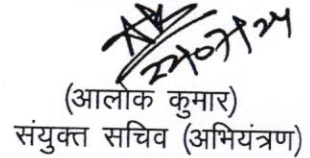 22/07/24
(आलोक कुमार)
संयुक्त सचिव (अभियंत्रण)